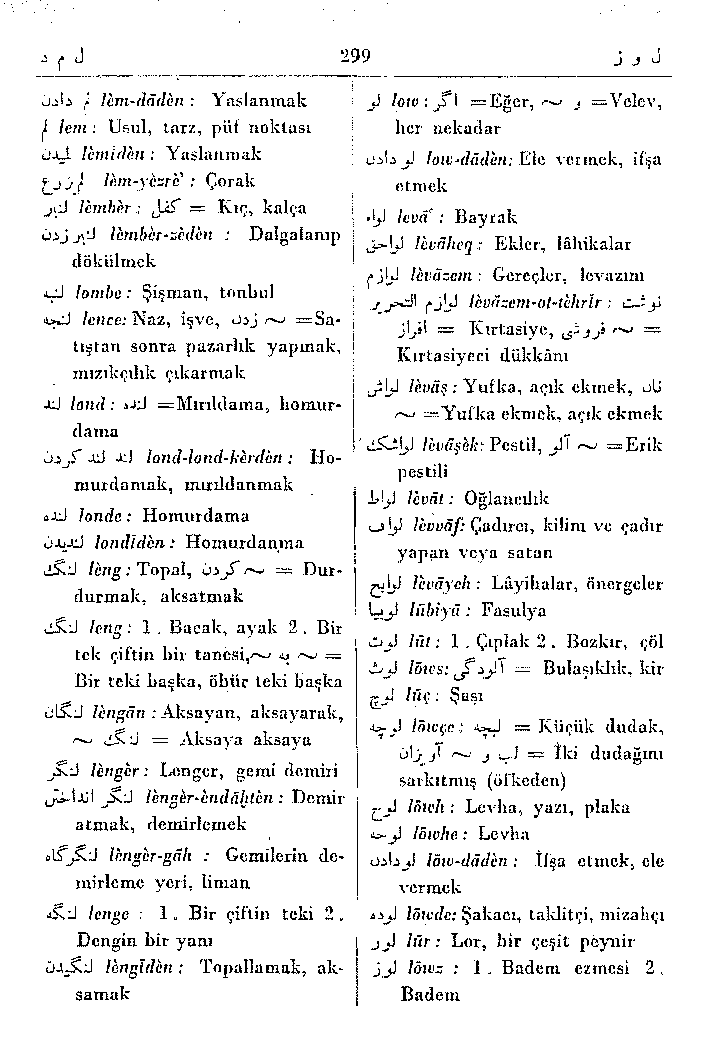 ل م د
299
ل و ز
لم دادن lèm-dādèn : Yaslanmak
لم lem : Usul, tarz, püf noktası
لمیدن lèmīdèn : Yaslanmak
لم یزرع lèm-yèzrè' : Çorak
لنبر lèmbèr : کفل = Kıç, kalça
لنبر زدن lèmbèr-zèdèn : Dalgalanıp
dökülmek
لنبه lombe : Şişman, tonbul
لنجه lence: Naz, işve, ~ زدن =Sa-
tıştan sonra pazarlık yapmak,
mızıkçılık çıkarmak
لند lond : لنده =Mırıldama, homur-
dama
لند لند کردن lond-lond-kèrdèn : Ho-
murdamak, mırıldanmak
لنده londe : Homurdama
لندیدن londīdèn : Homurdanma
لنگ lèng : Topal, ~ کردن = Dur-
durmak, aksatmak
لنگ leng : 1 . Bacak, ayak 2 . Bir
tek çiftin bir tanesi, ~ به ~ =
Bir teki başka, öbür teki başka
لنگان lèngān : Aksayan, aksayarak,
~ لنگ = Aksaya aksaya
لنگر lèngèr : Lenger, gemi demiri
لنگر انداختن lèngèr-èndāḫtèn : Demir
atmak, demirlemek
لنگرگاه lèngèr-gāh : Gemilerin de-
mirleme yeri, liman
لنگه lenge : 1 . Bir çiftin teki 2 .
Dengin bir yanı
لنگیدن lèngīdèn : Topallamak, ak-
samak
لو low : اگر =Eğer, ~ و =Velev,
her nekadar
لو دادن low-dādèn: Ele vermek, ifşa
etmek
لواء levā' : Bayrak
لواحق lèvāheq : Ekler, lâhikalar
لوازم lèvāzem : Gereçler, levazım
لوازم التحریر lèvāzem-ot-tèhrīr : نوشت
افزار = Kırtasiye, ~ فروشی =
Kırtasiyeci dükkânı
لواش lèvāş : Yufka, açık ekmek, نان
~ =Yufka ekmek, açık ekmek
لواشک lèvāşèk: Pestil, ~ آلو =Erik
pestili
لواط lèvāt : Oğlancılık
لواف lèvvāf: Çadırcı, kilim ve çadır
yapan veya satan
لوایح lèvāyeh : Lâyihalar, önergeler
لوبیا lūbiyā : Fasulya
لوت lūt : 1 . Çıplak 2 . Bozkır, çöl
لوث lōws: آلودگی = Bulaşıklık, kir
لوچ lūç : Şaşı
لوچه lōwçe : لبچه = Küçük dudak,
لب و ~ آویزان = İki dudağını
sarkıtmış (öfkeden)
لوح lōwh : Levha, yazı, plaka
لوحه lōwhe : Levha
لو دادن lōw-dādèn : İfşa etmek, ele
vermek
لوده lōwde: Şakacı, taklitçi, mizahçı
لور lūr : Lor, bir çeşit peynir
لوز lōwz : 1 . Badem ezmesi 2 .
Badem